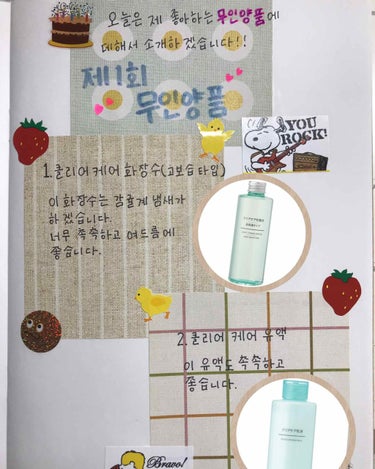 오늘은 제 좋아하는 무인양품에
데해서 소개하겠습니다!!
제1회
무인양품
YOU
ROCK!
1. 클리어 케어 화장수(고보습 타입)
이 화장수는 감귤게 냄새가
하겠습니다.
너무 쏙쏙하고 여드름에
좋습니다.
2. 클리어 케어 유액
이 유액도 쏙쏙하고
좋습니다.
Bravo!